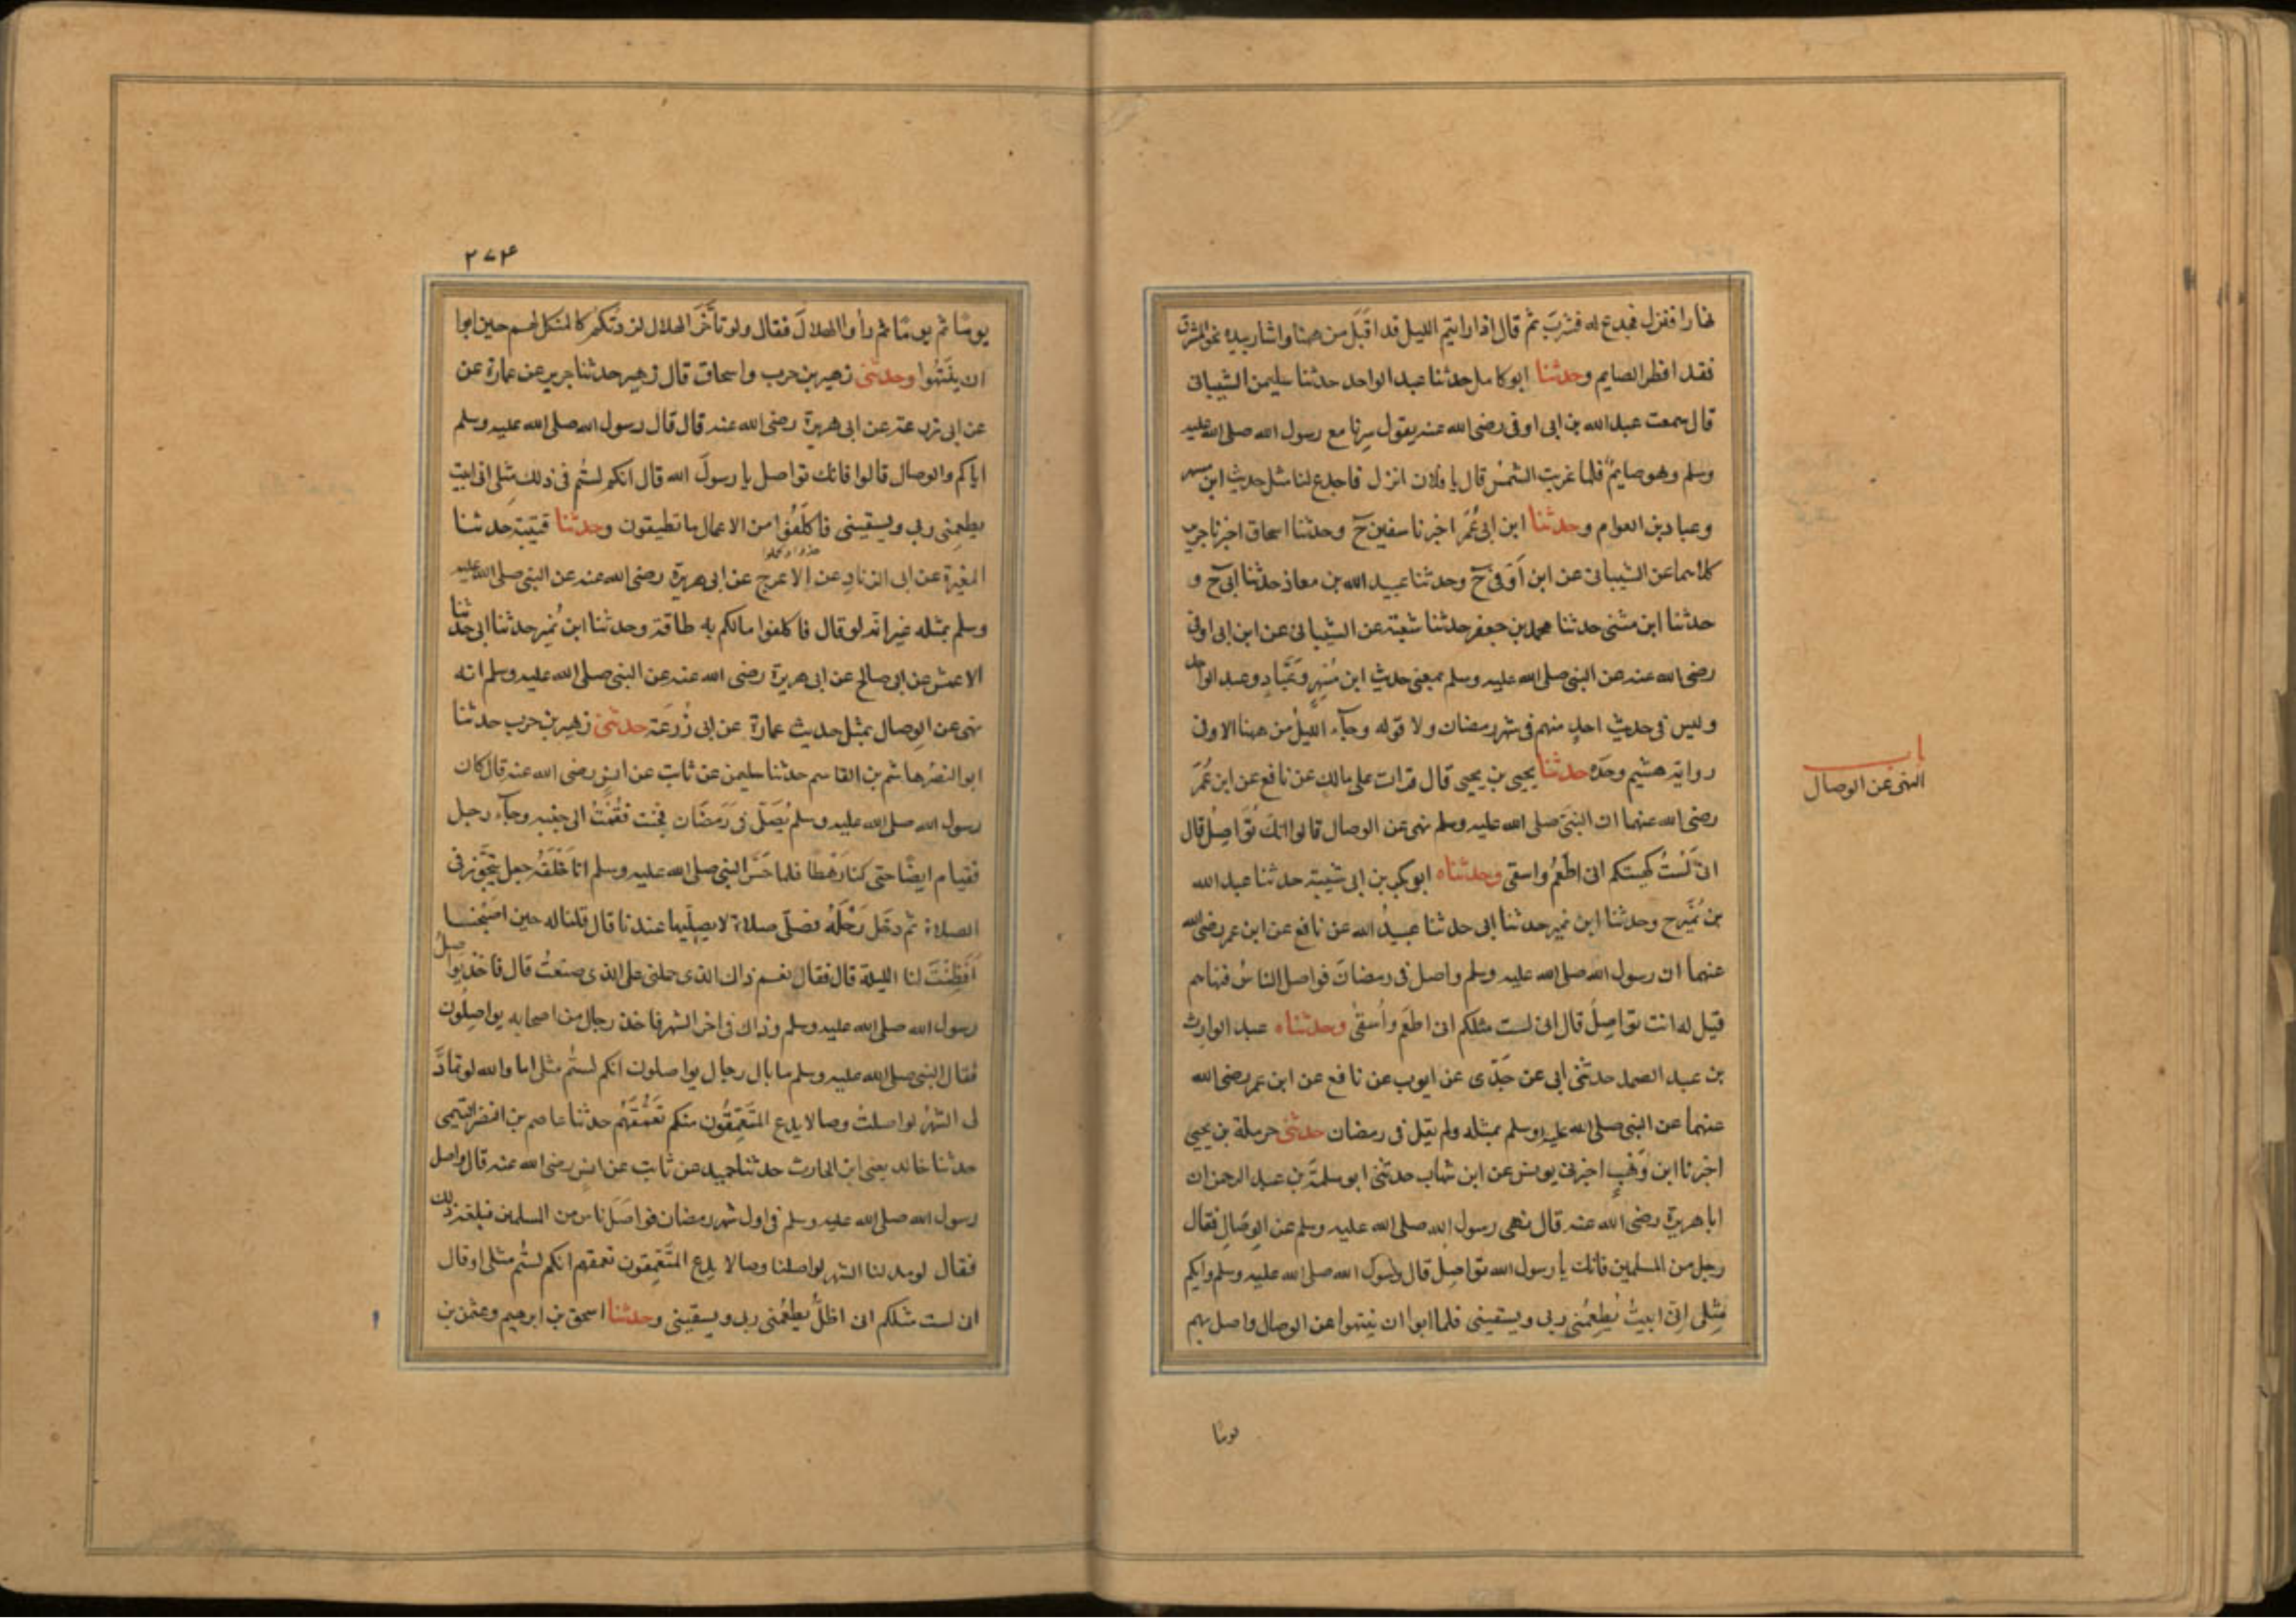 نهارا فنزل فجدع له فشرب ثم قال اذا رايتم الليل قد اقبل من هنا واشار بيده نحو المشرق
فقد افطر الصايم وحدثنا ابو كامل حدثنا عبد الواحد حدثنا سليمن الشيبانى
قال سمعت عبد الله بن ابى اوفى رضى الله عنه يقول سرنا مع رسول الله صلى الله عليه
وسلم وهو صايمٌ فلما غربت الشمس قال يا فلان انزل فاجدع لنا مثل حديث ابن مسهر
وعباد بن العوام وحدثنا ابن ابى عُمَرَ اخبرنا سفين ح وحدثنا اسحاق اخبرنا جرير
كلاهما عن الشيبانى عن ابن اَوفى ح وحدثنا عبيد الله بن معاذ حدثنا ابى ح و
حدثنا ابن مثنى حدثنا محمد بن جعفر حدثنا شعبة عن الشيبانى عن ابن ابى اوفى
رضى الله عنه عن النبى صلى الله عليه وسلم بمعنى حديث ابن مُسْهِرٍ وعَبَّادٍ وعبد الواحد
وليس فى حديث احدٍ منهم فى شهر رمضان ولا قوله وجآء الليلُ من ههنا الا وفى
رواية هشيم وحدَه حدثنا يحيى بن يحيى قال قرات على مالك عن نافع عن ابن عُمَرَ
باب
النهى عن الوصال
رضى الله عنهما ان النبىَ صلى الله عليه وسلم نهى عن الوصال قالوا انكَ تُوَاصِلُ قال
انى لَسْتُ كهيئتكم انى اطعَمُ واسقى وحدثناه ابو بكر بن ابى شيبة حدثنا عبد الله
بن نُمَير ح وحدثنا ابن نمير حدثنا ابى حدثنا عبيدُ الله عن نافع عن ابن عمر رضى الله
عنهما ان رسول الله صلى الله عليه وسلم واصل فى رمضانَ فواصل الناسُ فنهاهم
قيل له انت تواصِلَ قال انى لست مثلكم انى اطعَم واُسقى وحدثناه عبد الوارث
بن عبد الصمد حدثنى ابى عن جَدّى عن ايوب عن نافع عن ابن عمر رضى الله
عنهما عن النبى صلى الله عليه وسلم بمثله ولم يقل فى رمضان حدثنى حرملة بن يحيى
اخبرنا ابن وَهْبٍ اخبرنى يونس عن ابن شهاب حدثنى ابو سلمةَ بن عبد الرحمن ان
ابا هريرة رضى الله عنه قال نهى رسول الله صلى الله عليه وسلم عن الوِصَالِ فقال
رجل من المسلمين فانك يا رسول الله تواصِلُ قال رسول الله صلى الله عليه وسلم وايكم
مِثلى انى ابيتُ يُطعِمُنى ربى ويسقينى فلما ابوا ان ينتهوا عن الوصال واصل بهم
يومًا
٢٧٤
يومًا ثم يومًا ثم رأوا الهلالَ فقال ولو تأخَّرَ الهلال لزدتكم كالمنكل لهم حين ابوا
ان يَنْتَهُوا وحدثنى زهير بن حرب واسحاق قال زهير حدثنا جرير عن عمارة عن
عن ابى زرعة عن ابى هريرة رضى الله عنه قال قال رسول الله صلى الله عليه وسلم
اياكم والوصال قالوا فانك تواصل يا رسولَ الله قال انكم لستُم فى ذلك مثلى انى ابيت
يطعمنى ربى ويسقينى فاكلَفُوا من الاعمال ما تطيقون وحدثنا قتيبة حدثنا
المغيرة عن ابى الزنادِ عن الاعرج عن ابى هريرة رضى الله عنه عن النبى صلى الله عليه
وسلم بمثله غير انه لو قال فاكلفوا ما لكم به طاقة وحدثنا ابن نُمَير حدثنا ابى حدثنا
الاعمش عن ابى صالح عن ابى هريرة رضى الله عنه عن النبى صلى الله عليه وسلم انه
نهى عن الوصال بمثل حديث عمارة عن ابى زُرعَة حدثنى زهير بن حرب حدثنا
ابو النضر هاشم بن القاسم حدثنا سليمن عن ثابت عن انسٍ رضى الله عنه قال كان
رسول الله صلى الله عليه وسلم يُصَلّى فى رَمَضَان فجئت فقُمْتُ الى جنبه وجآء رجل
فقام ايضًا حتى كنا رَهْطًا فلما حَسَّ النبى صلى الله عليه وسلم انا خَلْفَهُ جعل يتجَوَّز فى
الصلاة ثم دخَل رَحْلَهُ فصلّى صلاة لا يصلّيها عندنا قال قلنا له حين اصبْحنا
اَفَطِنْتَ لنا الليلة قال فقال نعم ذاك الذى حملنى على الذى صنعتُ قال فاخذ يواصلُ
رسول الله صلى الله عليه وسلم وذاك فى اخر الشهر فاخذ رجال من اصحابه يواصِلُون
فقال النبى صلى الله عليه وسلم ما بال رجال يواصلون انكم لستُم مثلى اما والله لو تمادَّ
لى الشهرُ لواصلتُ وصالا يدع المتَعَمِّقُون منكم تَعَمُّقَهُم حدثنا عاصم بن النضر التيمى
حدثنا خالد يعنى ابن الحارث حدثنا حميد عن ثابت عن انس رضى الله عنه قال واصل
رسول الله صلى الله عليه وسلم فى اول شهر رمضان فواصَلَ ناس من المسلمين فبلغه ذلك
فقال لو مد لنا الشهر لواصلنا وصالا يدع المتَعَمِّقون تعمقهم انكم لستُم مثلى او قال
انى لست مثلكم انى اظلُّ يطعُمنى ربى ويسقينى وحدثنا اسحق بن ابرهيم وعثمن بن